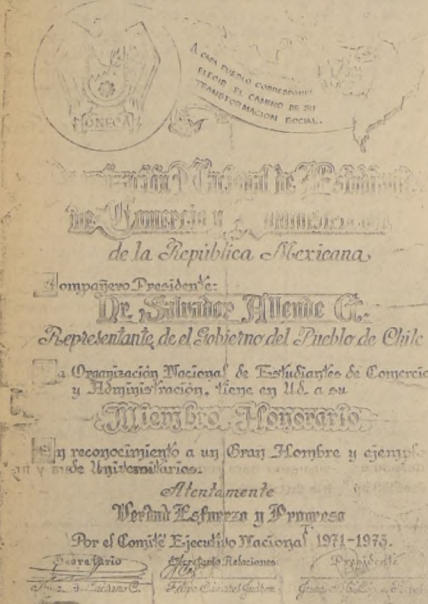 A CADA PUEBLO CORRESPONDE
ELEGIR EL CAMINO DE SU
TRANSFORMACION SOCIAL.
ONECA
Organización Nacional de Estudiantes
de Comercio y Administración
de la República Mexicana
Compañero Presidente:
Dr. Salvador Allende G.
Representante de el Gobierno del Pueblo de Chile
La Organización Nacional de Estudiantes de Comercio
y Administración, tiene en Ud. a su
Miembro Honorario
En reconocimiento a un Gran Hombre y ejemplo
de Universitarios.
Atentamente
Verdad Esfuerzo y Progreso
Por el Comité Ejecutivo Nacional 1971-1973.
Secretario Secretario Relaciones Presidente